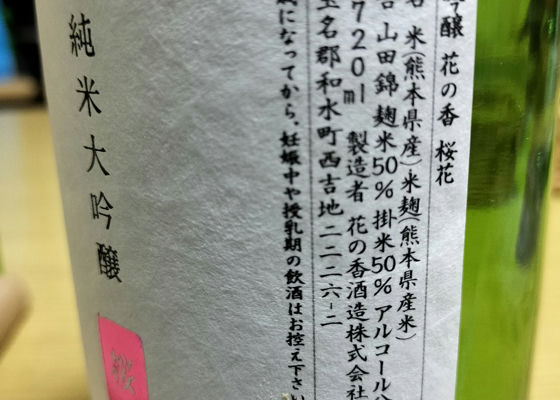 吟醸 花の香 桜花
米(熊本県産)米麹(熊本県産米)
山田錦 麹米50% 掛米50% アルコール分
720ml 製造者 花の香酒造株式会社
玉名郡和水町西吉地二二二六-二
歳になってから。妊娠中や授乳期の飲酒はお控え下さい
純米大吟醸
桜